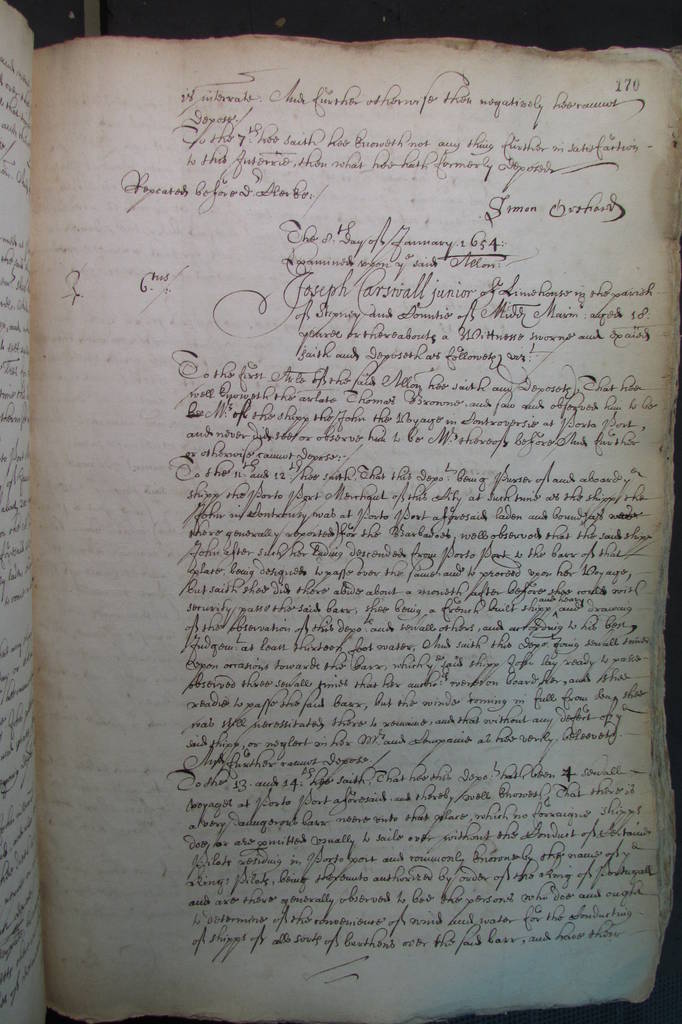 170
is interrate. And further otherwise then negatively hee cannot
depose./
To the 7th. hee saith hee knoweth not any thing further in satisfaction
to this Interrie, then what hee hath formerly deposed
Repeated before d. Clerke:/
Simon Orchard
The 8th. day of January 1654:
Examined upon ye said Allon:
6tus:/
Joseph Carswall junior of Limehouse in the parish
of Stepney and Countie of Middx Marinr: aged 18
yeares or thereabouts a Wittnesse sworne and examined
saith and deposeth as followeth, vizt:
To the first Arle of the said Allon hee saith and deposeth, That hee
well knoweth the arlate Thomas Browne, and saw and observed him to be
Mr. of the shipp the John the Voyage in Controversie at Porto Port,
and never did see or observe him to be Mr. thereof before And further
or otherwise cannot depose:-
To the 11th and 12th hee saith, That this depot. being Purser of and aboard ye
shipp the Porto Port Merchant of this City at such time as the shipp the
John in Controversy was at Porto Port aforesaid laden and bound (as
there generally reported) for the Barbadoes, well observed that the said shipp
John after such her lading descended from Porto Port to the barr of that
place, being designed to passe over the same and to proceed upon her Voyage,
but saith shee did there abide about a moneth after before shee could with
security passe the said barr, shee being a French built shipp and heavy and drawing
of the observation of this depot. and severall others, and according to his best
Judgemt. at least thirteen foot water, And saith this depot. going severall times
upon occasions towards the barr, which ye said shipp John lay ready to passe
observed three severall times that her anchor: were on board her, and shee
readie to passe the said barr, but the winde coming in full from sea, shee
was still necessitated there to remaine, and that without any defect of ye
said shipp, or neglect in her Mr. and Companie as hee verily beleeveth
And further cannot depose./
To the 13. and 14th. hee saith, That hee this depot. hath been 4 severall
voyages at Porto Port aforesaid and thereby well knoweth, That there is
a very daungerous barr neere unto that place, which no forraigne shipps
doe, or are pmitted usually to saile over without the Conduct of Certaine
Pilots residing in Porto port and commonly knowne by the name of ye
Kings Pilots, being thereunto authorized by order of the King of Portugall
and are there generally observed to bee the persons who doe and ought
to determine of the convenience of wind and water for the Conducting
of shipps of all sorts of burthens over the said barr, and have their